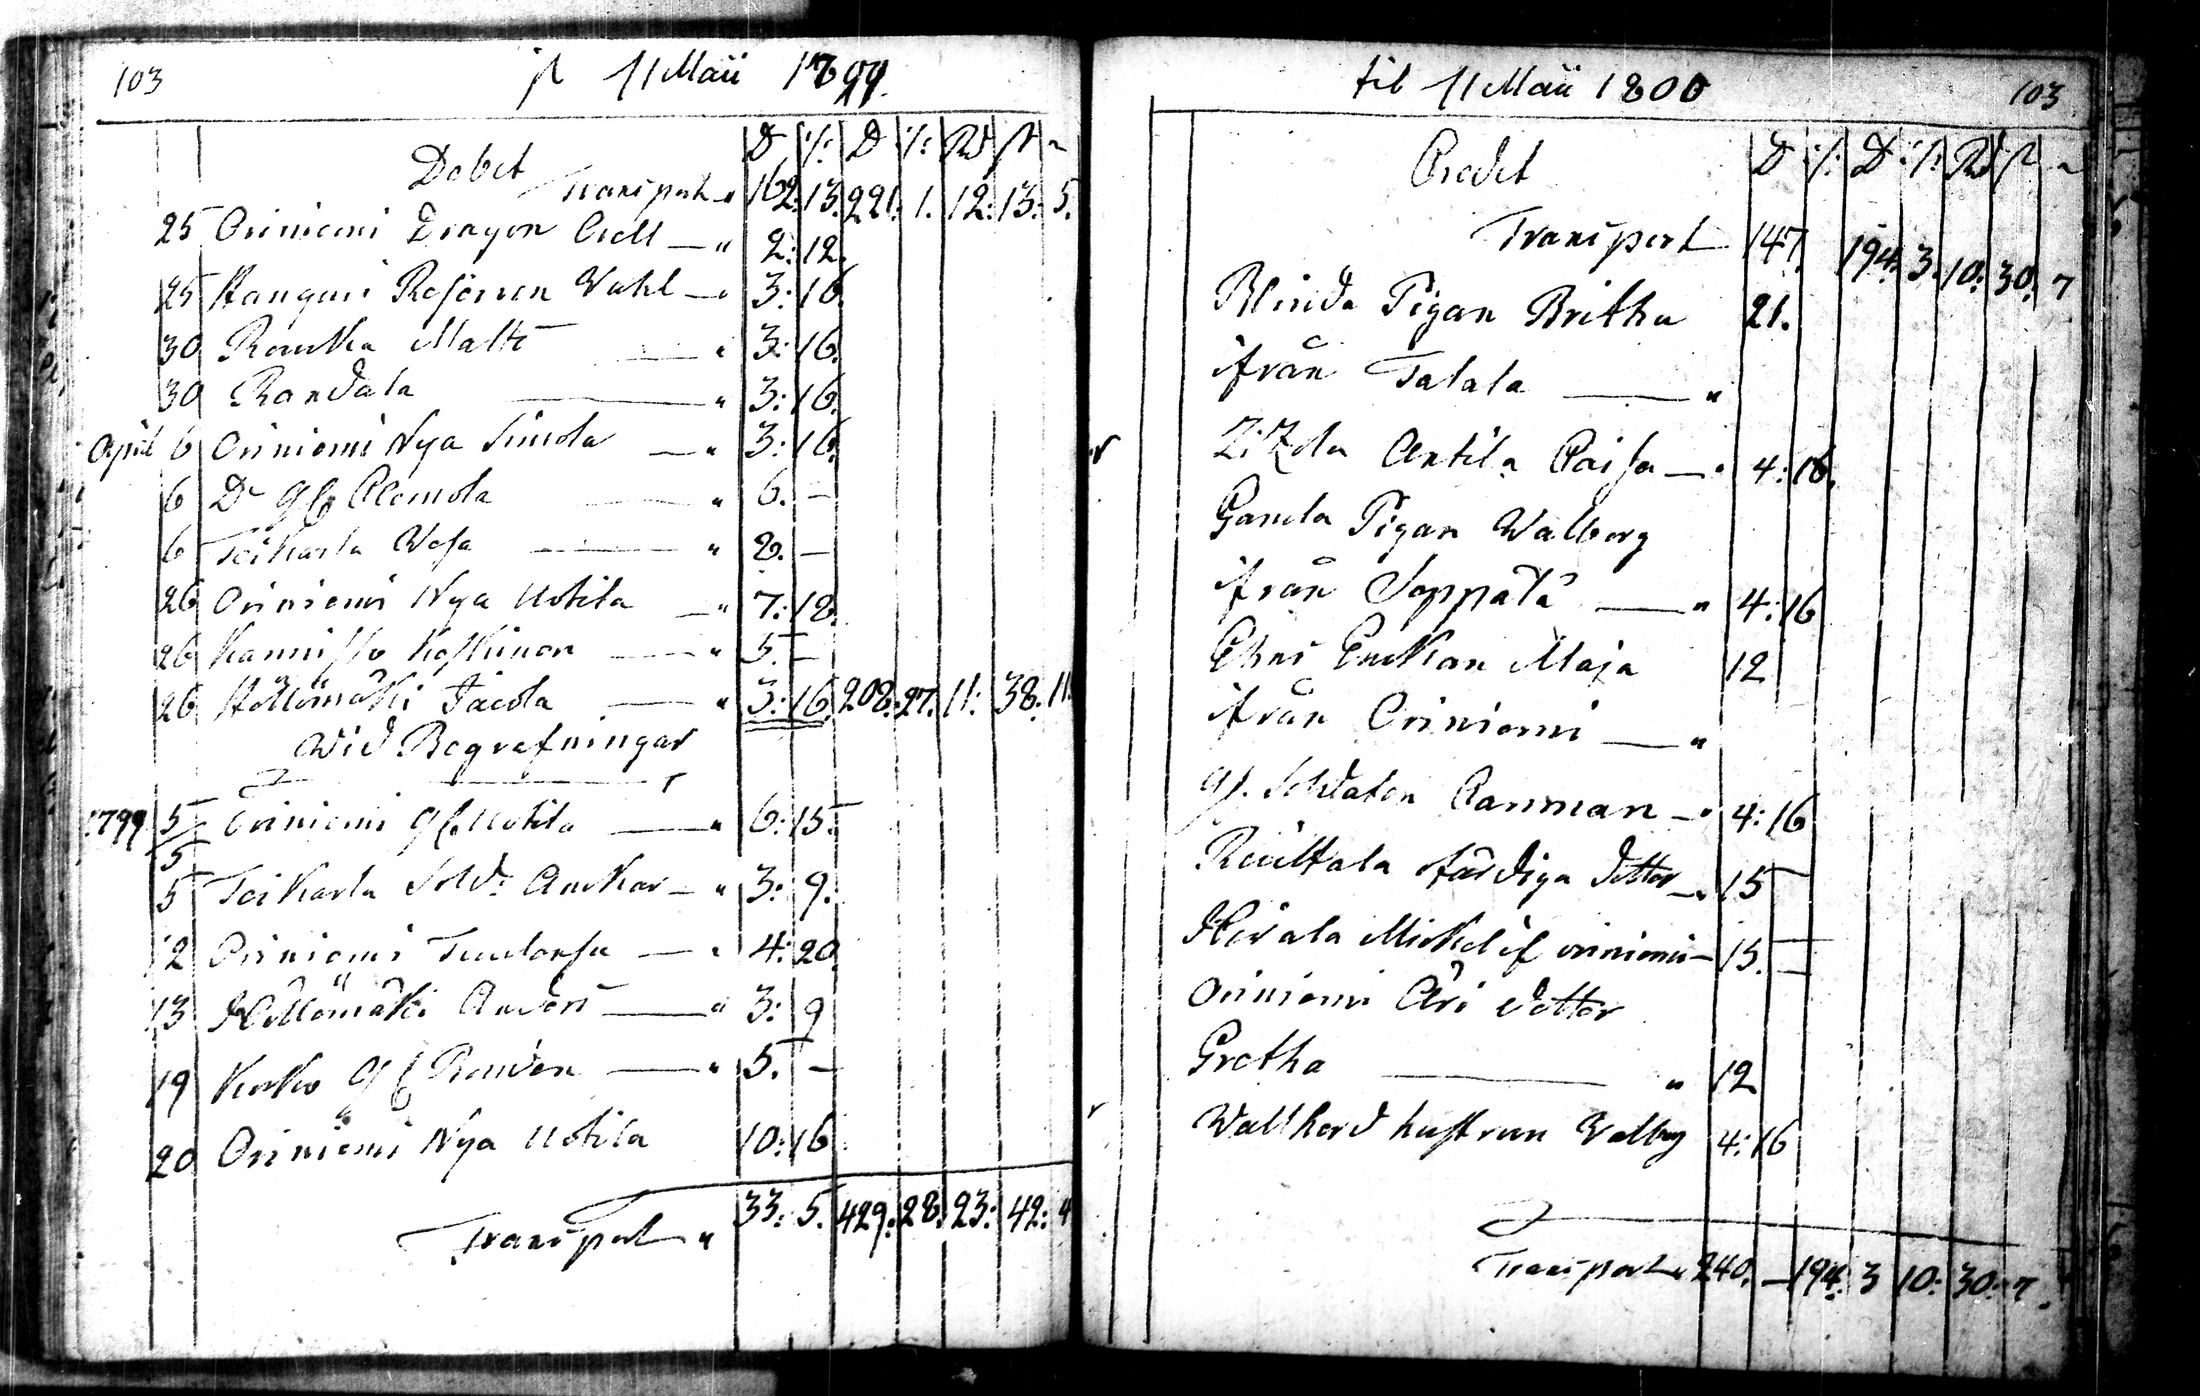 103
11 Maii 1799.
Debet
D /: D /: Rd ß
Transport 162: 13. 221. 1. 12: 13: 5.
25 Oriniemi Dragon 2: 12.
25 Hangusi Wahl 3: 16.
30 Rauska Matts 3: 16.
30 Randala 3: 16.
April 6 Oriniemi Nya Simola 3: 16.
6 D:o Gl Clemola 6. –
6 Teikarla 2. –
26 Oriniemi Nya Uotila 7: 12.
26 Kannisto Koskinen 5. –
26 Hellömäki Jacola 3: 16. 208. 27. 11: 38. 11.
Wid Begrafningar
1799 5/5 Oriniemi Gl Uotila 6: 15.
5 Teikarla Sold: Anckar 3: 9.
12 Oriniemi 4: 20
13 Hellömäki Anders 3: 9
19 Kosko Gl 5. –
20 Oriniemi Nya Uotila 10: 16
Transport 33: 5. 429. 28. 23: 42: 4
til 11 Maii 1800
103
Credit
D /: D /: Rd ß
Transport 147. 194. 3. 10: 30: 7
Blinda Pigan Britha 21.
ifrån Talala
Antila Caisa 4: 16.
Gamla Pigan Walborg
ifrån Soppala 4: 16
Enckan Maja 12
ifrån Oriniemi
gl. Soldaten Canman 4: 16
färdiga dotter 15
Michel if oriniemi 15. –
Oriniemi dotter
Gretha 12
hustrun Walborg 4: 16
Transport 240. – 194. 3 10: 30: 7.